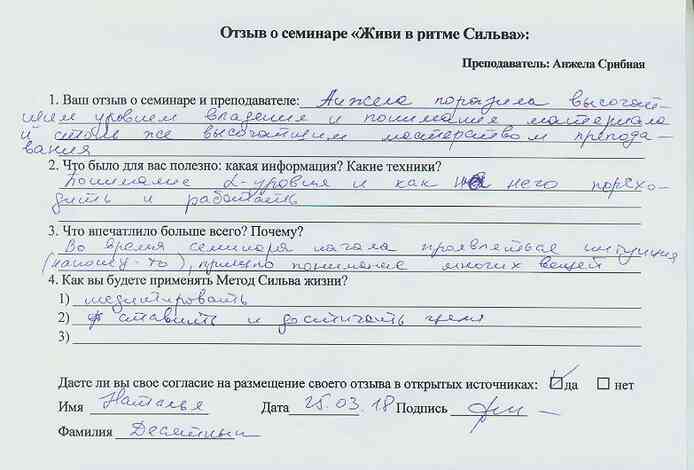 Отзыв о семинаре «Живи в ритме Сильва»:
Преподаватель: Анжела Срибная
1. Ваш отзыв о семинаре и преподавателе: Анжела поразила высочай-
шим уровнем владения и понимания материала
и столь же высочайшим мастерством препода-
вания
2. Что было для вас полезно: какая информация? Какие техники?
Понимание α-уровня и как на него перехо-
дить и работать
3. Что впечатлило больше всего? Почему?
Во время семинара начала проявляться интуиция
(наконец-то), пришло понимание многих вещей
4. Как вы будете применять Метод Сильва жизни?
1) медитировать
2) ставить и достигать цели
3)
Даете ли вы свое согласие на размещение своего отзыва в открытых источниках: да нет
Имя Наталья Дата 25.03.18 Подпись
Фамилия